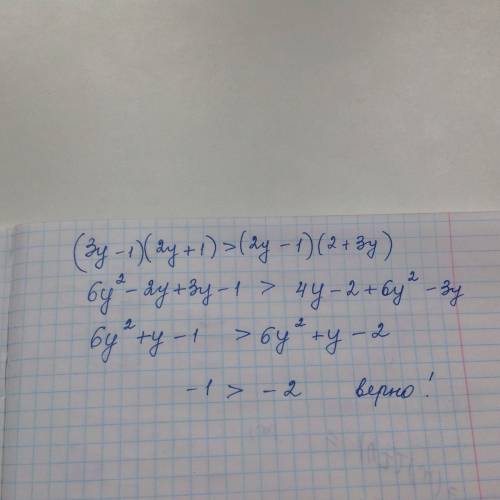 (3y-1)(2y+1)>(2y-1)(2+3y)
6y²-2y+3y-1 > 4y-2+6y²-3y
6y²+y-1 > 6y²+y-2
-1 > -2 верно!